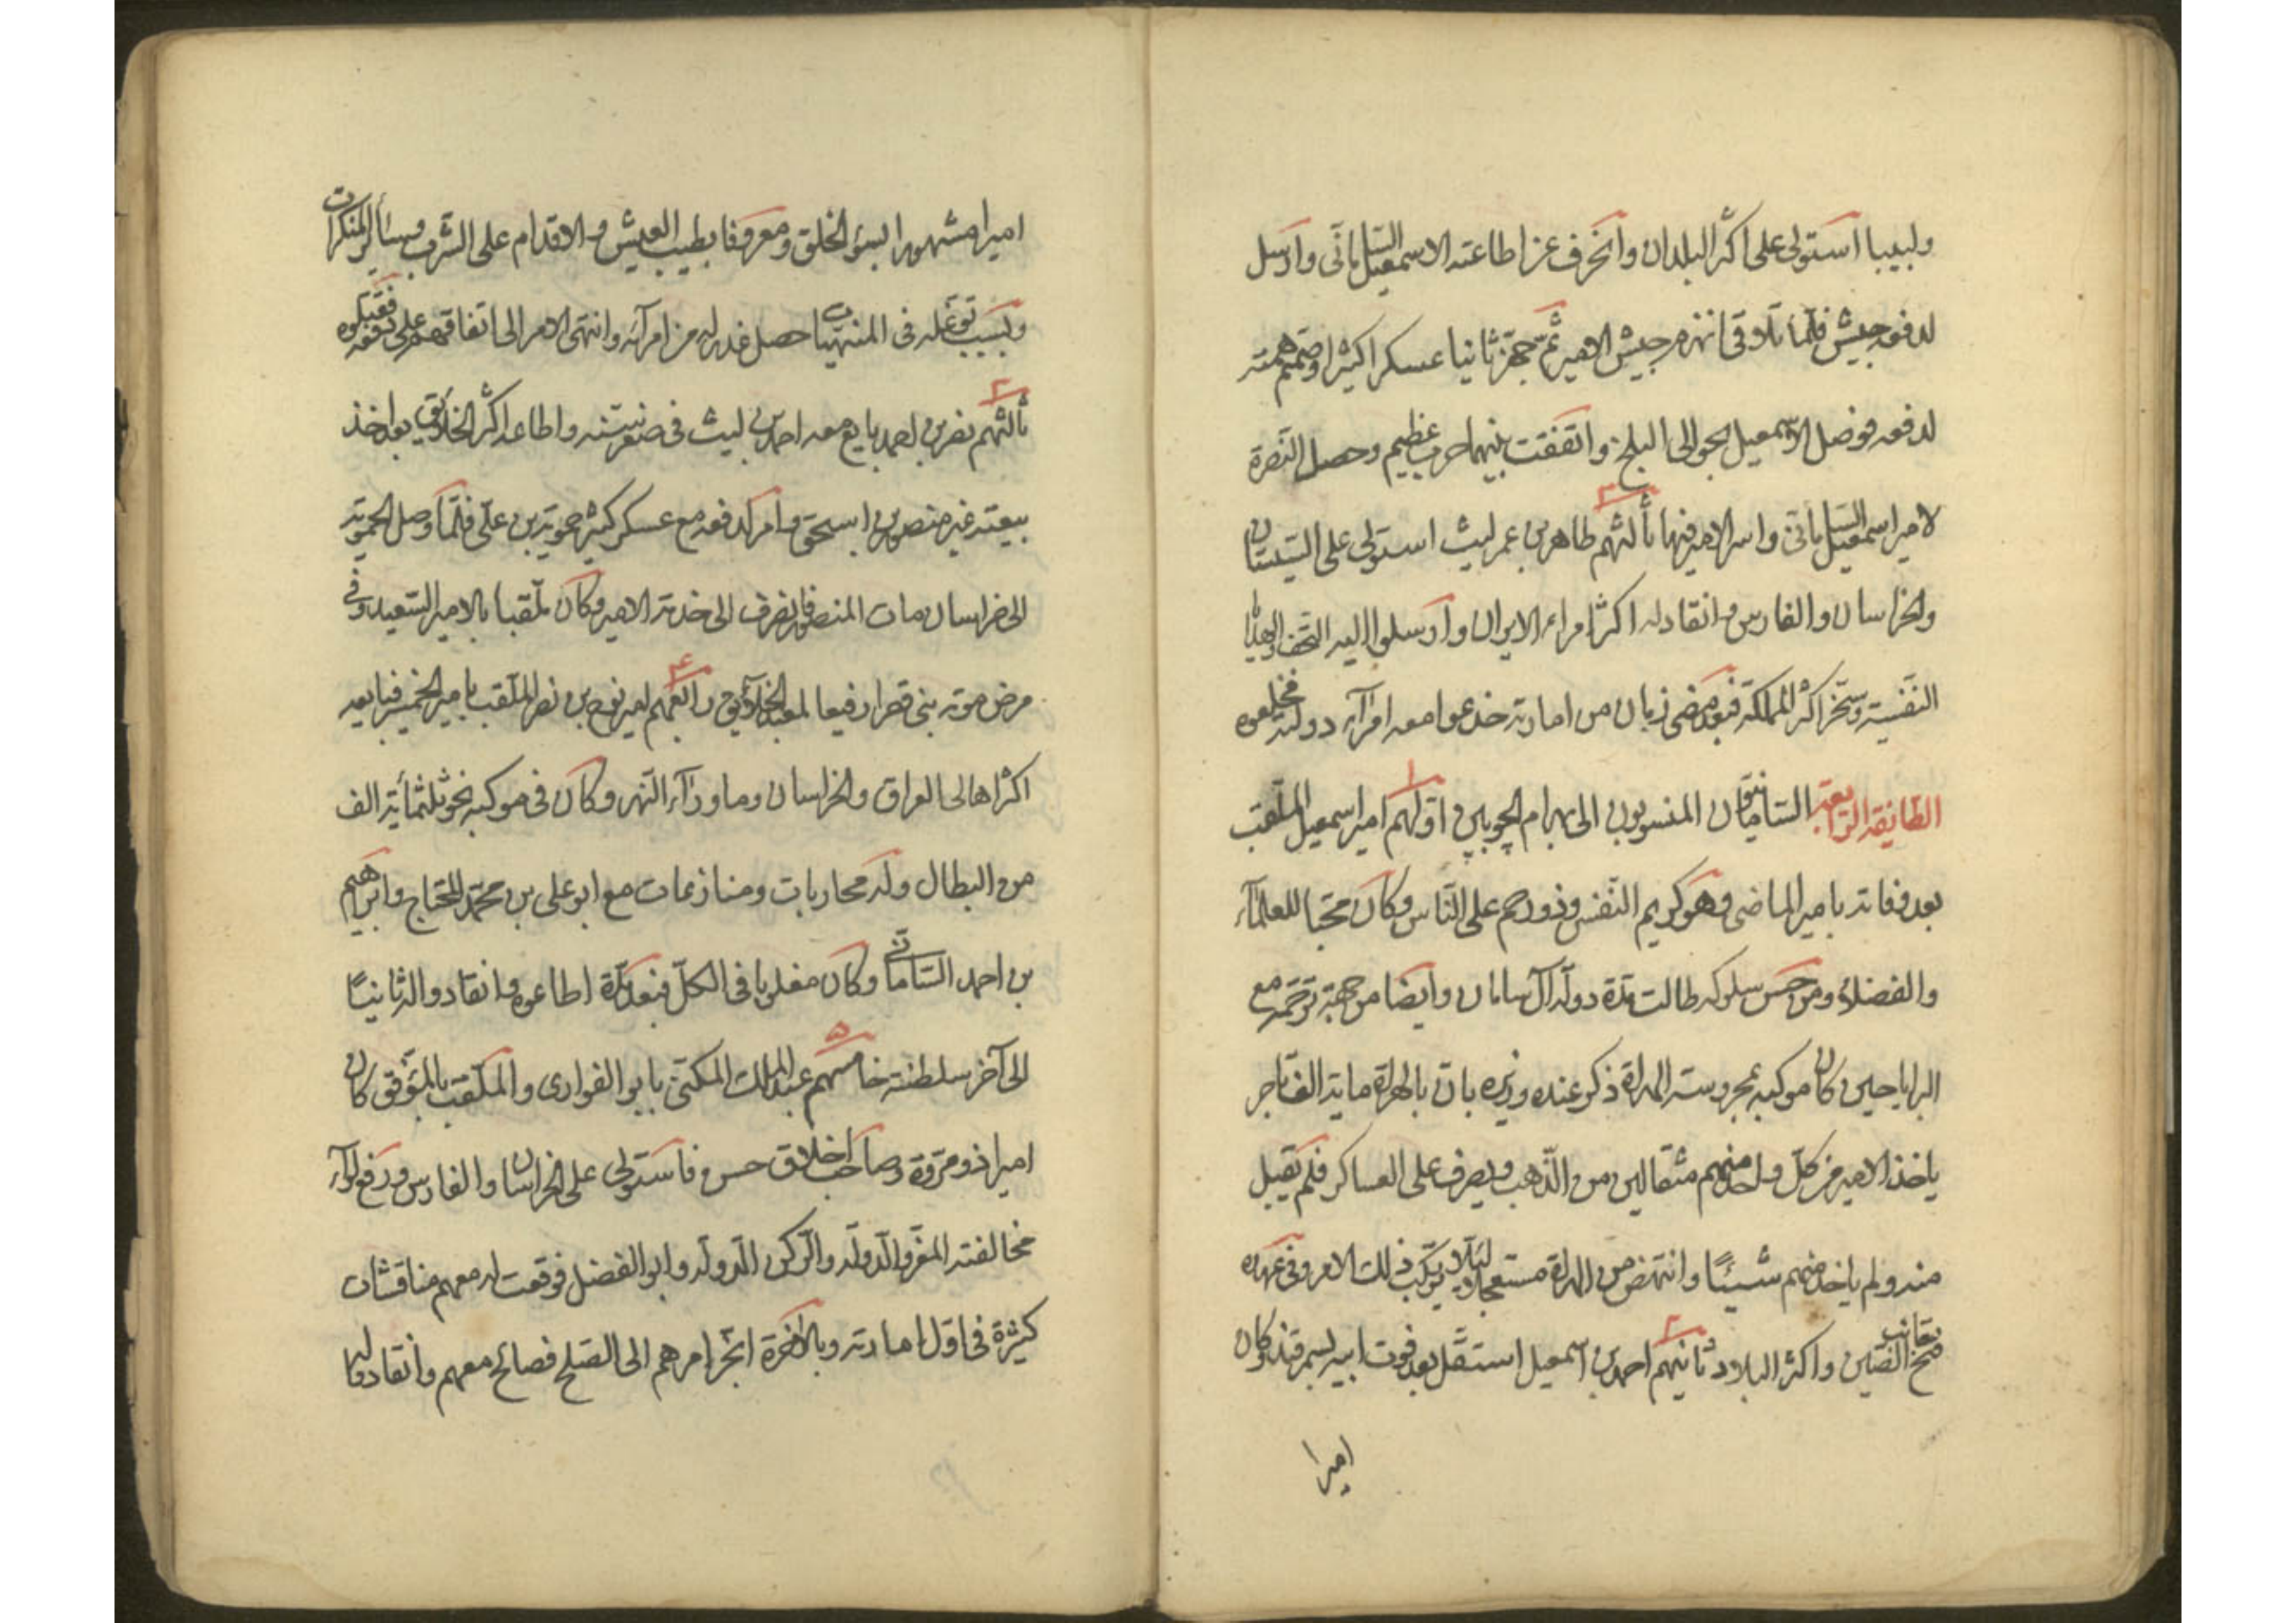 ولبيبا استولى على اكثر البلدان وانحرف عن اطاعته الا اسمعيل السامانى وارسل
لدفعه جيش فلما تلاقى انهزم جيش الامير ثم جهز ثانيا عسكرا كثيرا وصمم همته
لدفعه فوصل الاسمعيل الى البلخ واتفقت بينهما حرب عظيم وحصل النصرة
لامير اسمعيل السامانى واسر الامير فيها ثالثهم طاهر بن عمر ليث استولى على السيستان
والخراسان والفارس وانقاد له اكثر امراء الايران وارسلوا اليه التحف والهدايا
النفسية وسخر اكثر المملكة فبعد مضى زمان من امارته خدعوا معه امراء دولته فخلعوه
الطائفة الرابعة السامانيون المنسوبون الى بهرام الچوبين اولهم امير اسمعيل الملقب
بعد وفاته بامير الماضى وهو كريم النفس وذو رحم على الناس وكان محبا للعلماء
والفضلاء ومن حسن سلوكه طالت مدة دولة آل سامان وايضا من جهة ترحمه مع
البرايا حين كان موكبه بمحروسة الهراة ذكر عنده وزيره بان بالهراة ماية الف تاجر
ياخذ الامير من كل واحد منهم مثقالين من الذهب ويصرف على العساكر فلم يقبل
منه ولم ياخذ منهم شيئًا وانتهض من الهراة مستعجلا لئلا يرتكب ذلك الامر وفى عهده
فتح الصين واكثر البلاد ثانيهم احمد بن اسمعيل استقل بعد فوت ابيه بسمرقند وكان
اميرا
اميرا مشهورا بسؤ الخلق ومعروفا بطيب العيش والاقدام على الشرب وسائر المنكرات
وبسبب توغله فى المنهيات حصل غدر له من امرائه وانتهى الامر الى اتفاقهم على دفعه فقتلوه
ثالثهم نصر بن احمد بايع معه احمد بن ليث فى صغر سنه واطاعه اكثر الخلائق بعد اخذ
بيعته غير منصور بن اسحق وامر لدفعه مع عسكر كثير حمويه بن على فلما وصل الحمويه
الى خراسان مات المنصور فانصرف الى خدمة الامير وكان ملقبا بالامير السعيد وفى
مرض موته بنى قصرا رفيعا لمعبد الخلائق رابعهم امير نوح بن نصر الملقب بامير الحميد فبايعه
اكثر اهالى العراق والخراسان وماوراء النهر وكان فى موكبه نحو ثلثمائة الف
من البطال وله محاربات ومنازعات مع ابو على بن محمد المحتاج وابراهيم
بن احمد السامانى وكان مغلوبا فى الكل فبعد مدة اطاعوه وانقادوا له ثانيًا
الى آخر سلطنته خامسهم عبد الملك المكنى بابو الفوارى والملقب بالمؤفق كان
اميرا ذو مروة وصاحب اخلاق حسن فاستولى على الخراسان والفارس ورفع لواء
مخالفته المعز والدولة والركن الدولة وابو الفضل فوقعت له معهم مناقشات
كثيرة فى اول امارته وبالاخرة انجر امرهم الى الصلح فصالح معهم وانقادوا له